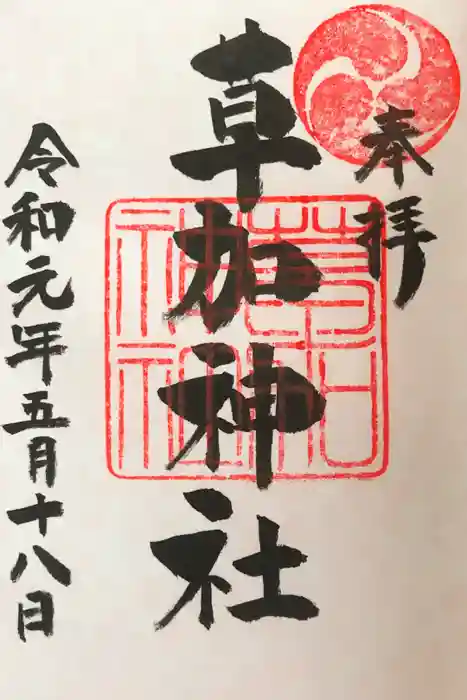 奉拝
草加神社
草加
神社
令和元年五月十八日